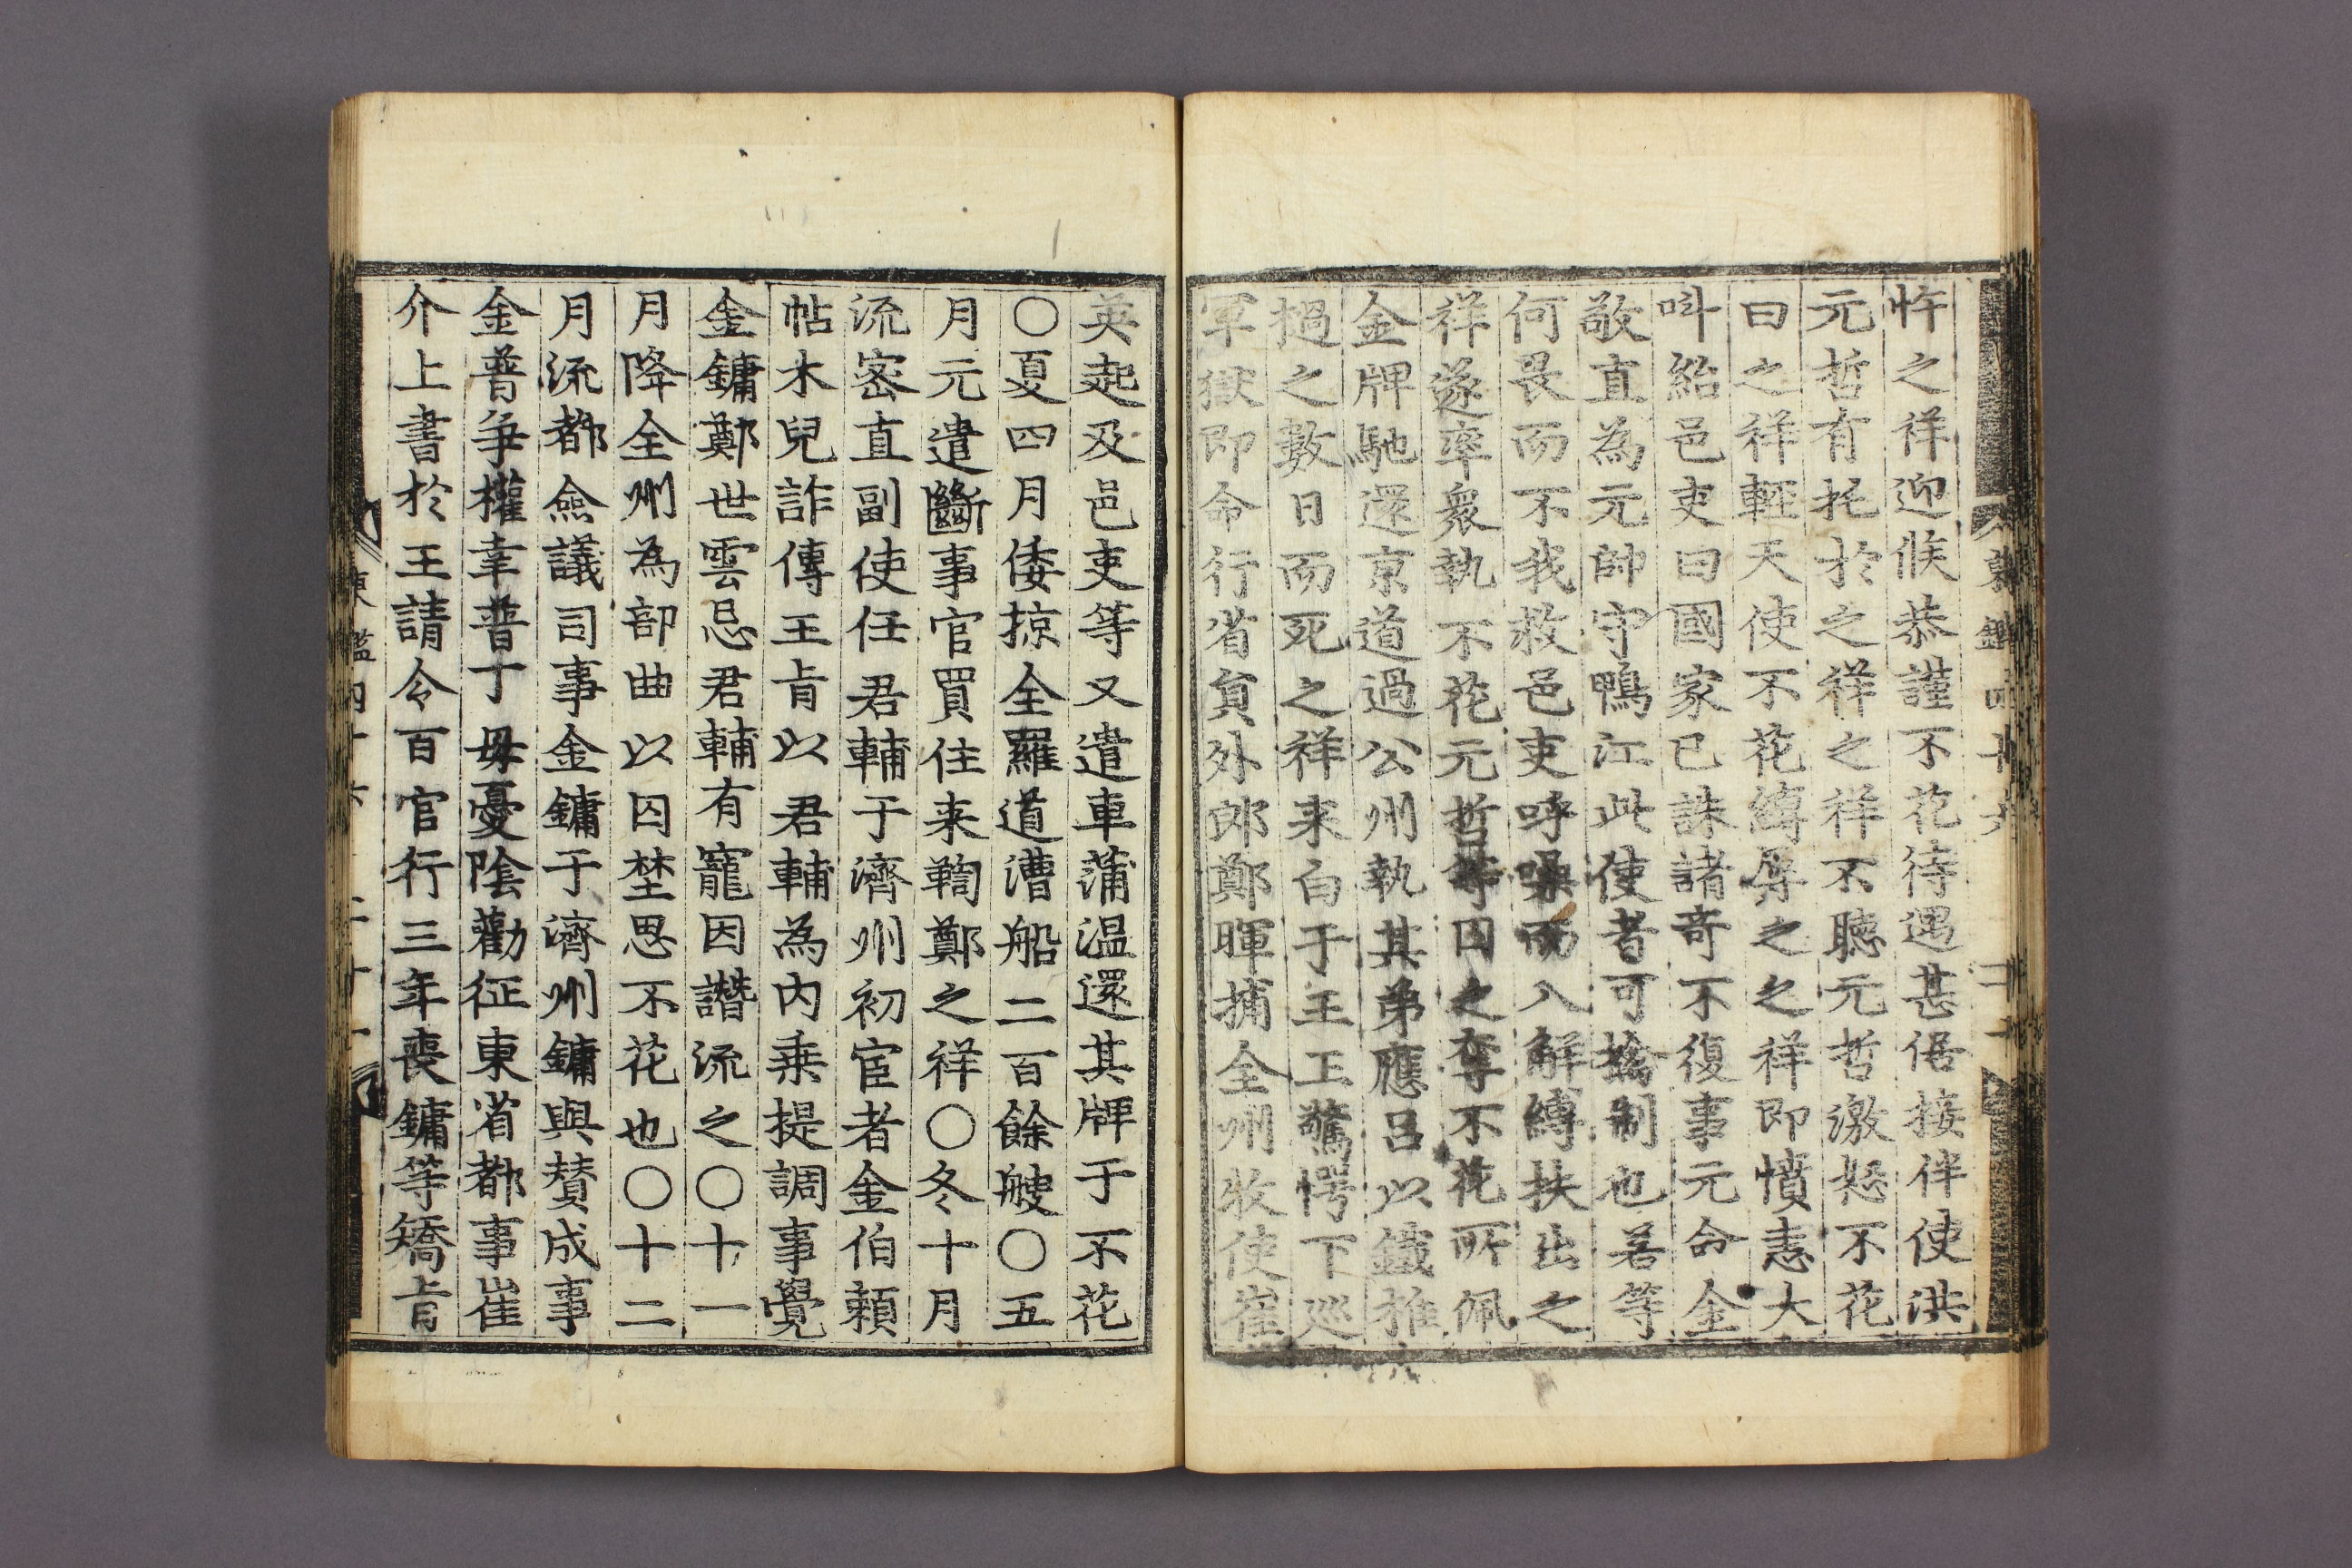 忤之祥迎候恭謹不花待遇甚倨接伴使洪
元哲有托於之祥之祥不聽元哲激怒不花
曰之祥輕天使不花縛辱之之祥即憤恚大
呌紿邑吏曰國家已誅諸竒不復事元命金
敬直為元帥守鴨江此使者可擒制也若等
何畏而不我救邑吏呼噪而入解縛扶出之
祥遂率衆執不花元哲等囚之奪不花所佩
金牌馳還京道過公州執其弟應呂以鐵椎
撾之數日而死之祥来白于王王驚愕下巡
軍獄即命行省貟外郎鄭暉捕全州牧使崔
英起及邑吏等又遣車蒲温還其牌于不花
〇夏四月倭掠全羅道漕船二百餘艘〇五
月元遣斷事官買住来鞫鄭之祥〇冬十月
流密直副使任君輔于濟州初宦者金伯頼
帖木兒詐傳王㫖以君輔為内乗提調事覺
金鏞鄭世雲忌君輔有寵因譖流之〇十一
月降全州為部曲以囚埜思不花也〇十二
月流都僉議司事金鏞于濟州鏞與賛成事
金普争權幸普丁毋憂陰勸征東省都事崔
介上書於王請令百官行三年喪鏞等矯㫖
東鑑四十六